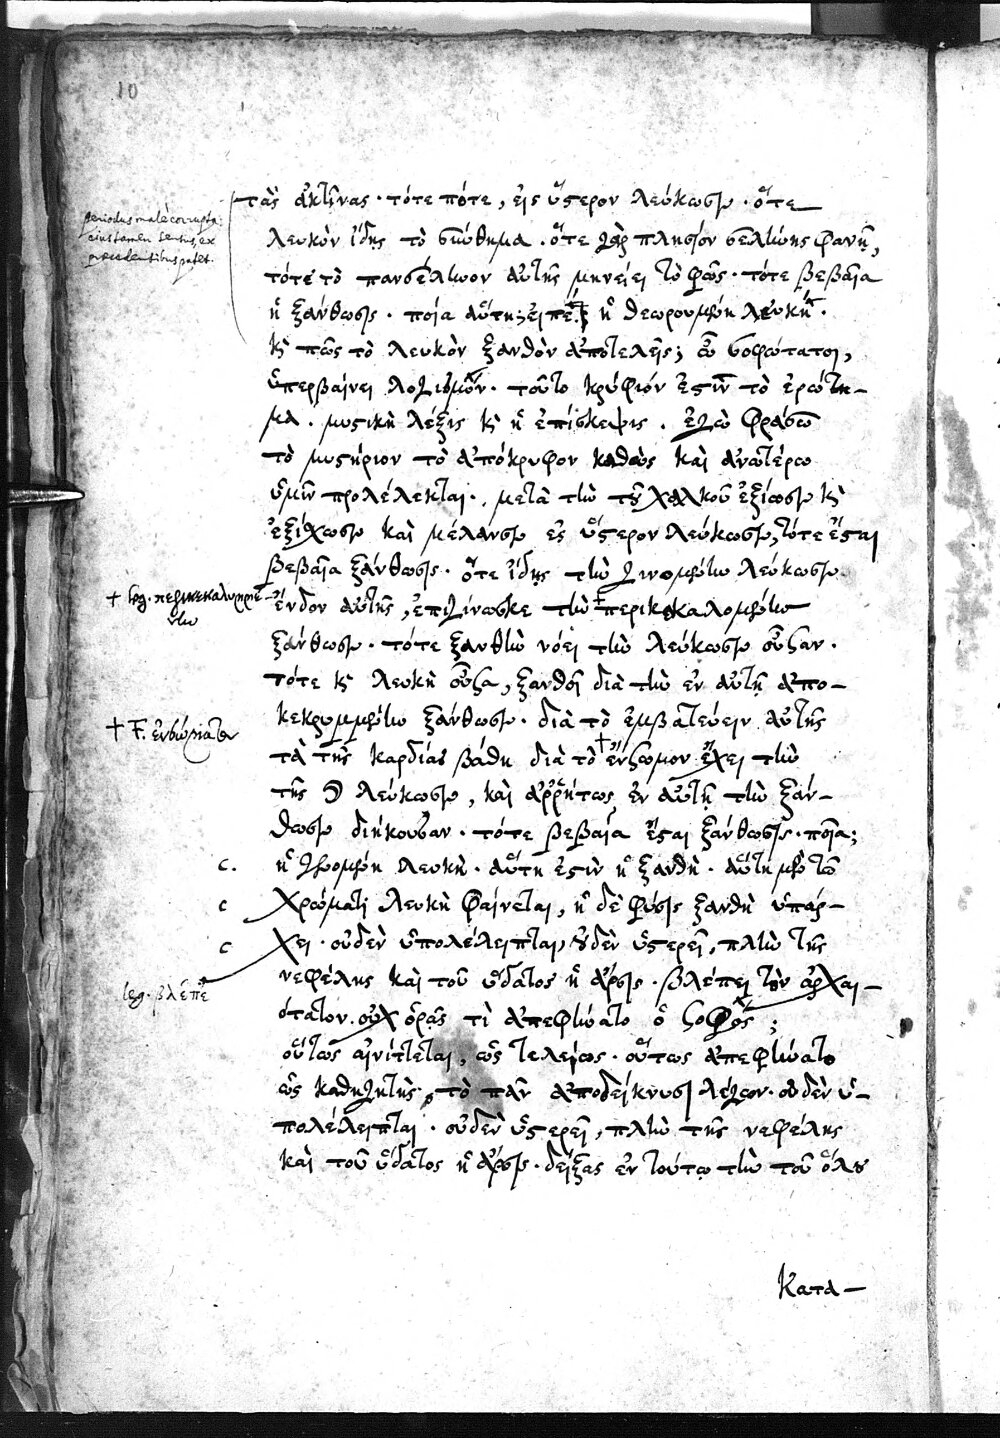 10
τὰς ἀκτῖνας · τότε πότε, εἰς ὕστερον λεύκωσιν · ὅτε
periodus male corrupta:
eius tamen sensus ex
praecedentibus patet.
λευκὴν ἴδῃς τὸ σύνθημα · ὅτε γὰρ πλησίον σελήνης φανῇ,
τότε τὸ πανσέληνον αὐτῆς μηνύει τὸ φῶς · τότε βεβαία
ἡ ξάνθωσις · ποία αὕτη; εἰπὲ ἡ θεωρουμένη λευκή ·
καὶ πῶς τὸ λευκὸν ξανθὸν ἀποτελεῖς; ὦ σοφώτατοι,
ὑπερβαίνει λογισμὸν · τοῦτο κρύφιόν ἐστιν τὸ ἐρώτη–
μα · μυστικὴ λέξις καὶ ἡ ἐπίσκεψις · ἐγὼ φράσω
τὸ μυστήριον τὸ ἀπόκρυφον καθὼς καὶ ἀνωτέρω
ὑμῖν προλέλεκται · μετὰ τὴν τοῦ χαλκοῦ ἐξίωσιν καὶ
ἐξίχωσιν καὶ μέλανσιν εἰς ὕστερον λεύκωσιν, τότε ἔσται
βεβαία ξάνθωσις · ὅτε ἴδῃς τὴν γινομένην λεύκωσιν
† leg. περικεκαλυμμέ–
νην
ἔνδον αὐτῆς, ἐπιγίνωσκε τὴν † περικεκαλομένην
ξάνθωσιν · τότε ξανθὴν νόει τὴν λεύκωσιν οὖσαν ·
τότε καὶ λευκὴ οὖσα, ξανθοῖ διὰ τὴν ἐν αὐτῇ ἀπο–
κεκρυμμένην ξάνθωσιν · διὰ τὸ ἐμβατεύειν αὐτῆς
† F.
τὰ τῆς καρδίας βάθη διὰ τὸ † ἔνζωμον ἔχει τὴν
τῆς ☽ λεύκωσιν, καὶ ἀῤῥήτως ἐν αὐτῇ τὴν ξάν–
θωσιν διήκουσαν · τότε βεβαία ἔσται ξάνθωσις · ποία;
c.
ἡ γινομένη λευκὴ · αὕτη ἐστὶν ἡ ξανθὴ · αὕτη μὲν τῷ
c
χρώματι λευκὴ φαίνεται, ἡ δὲ φύσις ξανθὴ ὑπάρ–
c
χει · οὐδὲν ὑπολέλειπται, οὐδὲν ὑστερεῖ, πλὴν τῆς
leg. βλέπε
νεφέλης καὶ τοῦ ὕδατος ἡ ἄρσις · βλέπει τὸν ἀρχαι–
ότατον · οὐχ ὁρᾷς τί ἀπεφήνατο ὁ σοφὸς;
οὕτως αἰνίττεται, ὡς τελείως · οὕτως ἀπεφήνατο
ὡς καθηγητὴς, τὸ πᾶν ἀποδείκνυσι λέγων · οὐδὲν ὑ–
πολέλειπται · οὐδὲν ὑστερεῖ, πλὴν τῆς νεφέλης
καὶ τοῦ ὕδατος ἡ ἄρσις · δείξας ἐν τούτῳ τὴν τοῦ ὅλου
Κατα–